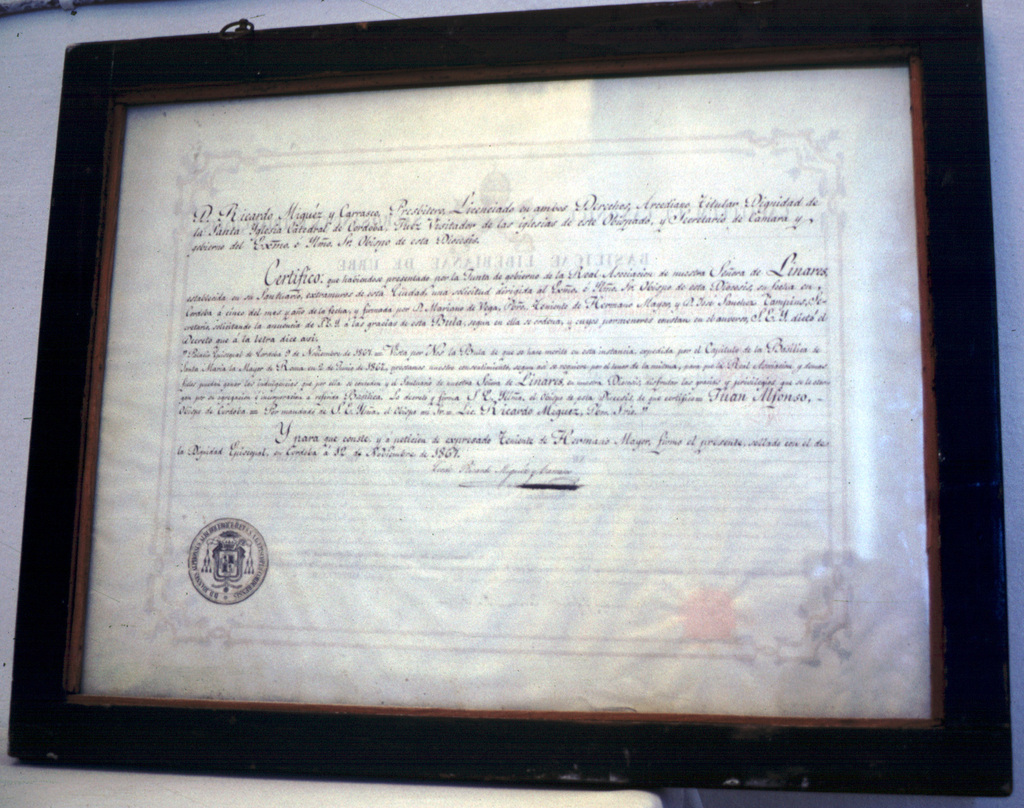 D. Ricardo Miguéz y Carrasco, Presbitero, Licenciado en ambos Derechos, Arcediano Titular Dignidad de
la Santa Iglesia Catedral de Cordoba, Visitador de las iglesias de este Obispado, y Secretario de Cámara y
gobierno del Excmo. é Ilmo. Sr. Obispo de esta Diocesis.
BASILICAE LIBERIANAE DE URBE
Certifico: que habiendose presentado por la Junta de gobierno de la Real Asociacion de nuestra Señora de Linares,
establecida en su Santuario, extramuros de esta Ciudad, una solicitud dirigida al Excmo. é Ilmo. Sr. Obispo de esta Diocesis, su fecha en
Cordoba á cinco del mes y año de la fecha, y firmada por D. Mariano de Vega, Pbro. Teniente de Hermano Mayor, y D. José Sanchez
solicitando la anuencia de S.E.Y. á las gracias de esta Bula, segun en ella se ordena, y cuyos pormenores constan en el anverso, S.E.Y. dictó el
Decreto que á la letra dice asi.
"Palacio Episcopal de Cordoba 9 de Noviembre de Vista por Nos la Bula de que se hace merito en esta instancia, expedida por el Capitulo de la Basilica de
Santa Maria la Mayor de Roma en de Junio de prestamos nuestro consentimiento, segun asi se requiere por el tenor de la misma, para que la Real Asociacion, y demas
fieles puedan ganar las indulgencias que por ella se conceden y el Santuario de nuestra Señora de Linares, en nuestra Diocesis, disfrutar las gracias y privilegios que se le
por su agregacion é incorporacion á referida Basilica. Lo decretó y firma S.E. Ylma. el Obispo de esta Diocesis de que certifico = Juan Alfonso, -
Obispo de Cordoba = Por mandado de S.E. Ylma. el Obispo mi Sr. = Lic. Ricardo Miguez, Srio."
Y para que conste, y á peticion de expresado Teniente de Hermano Mayor, firmo el presente, sellado con el de
la Dignidad Episcopal, en Cordoba á 12 de Noviembre de